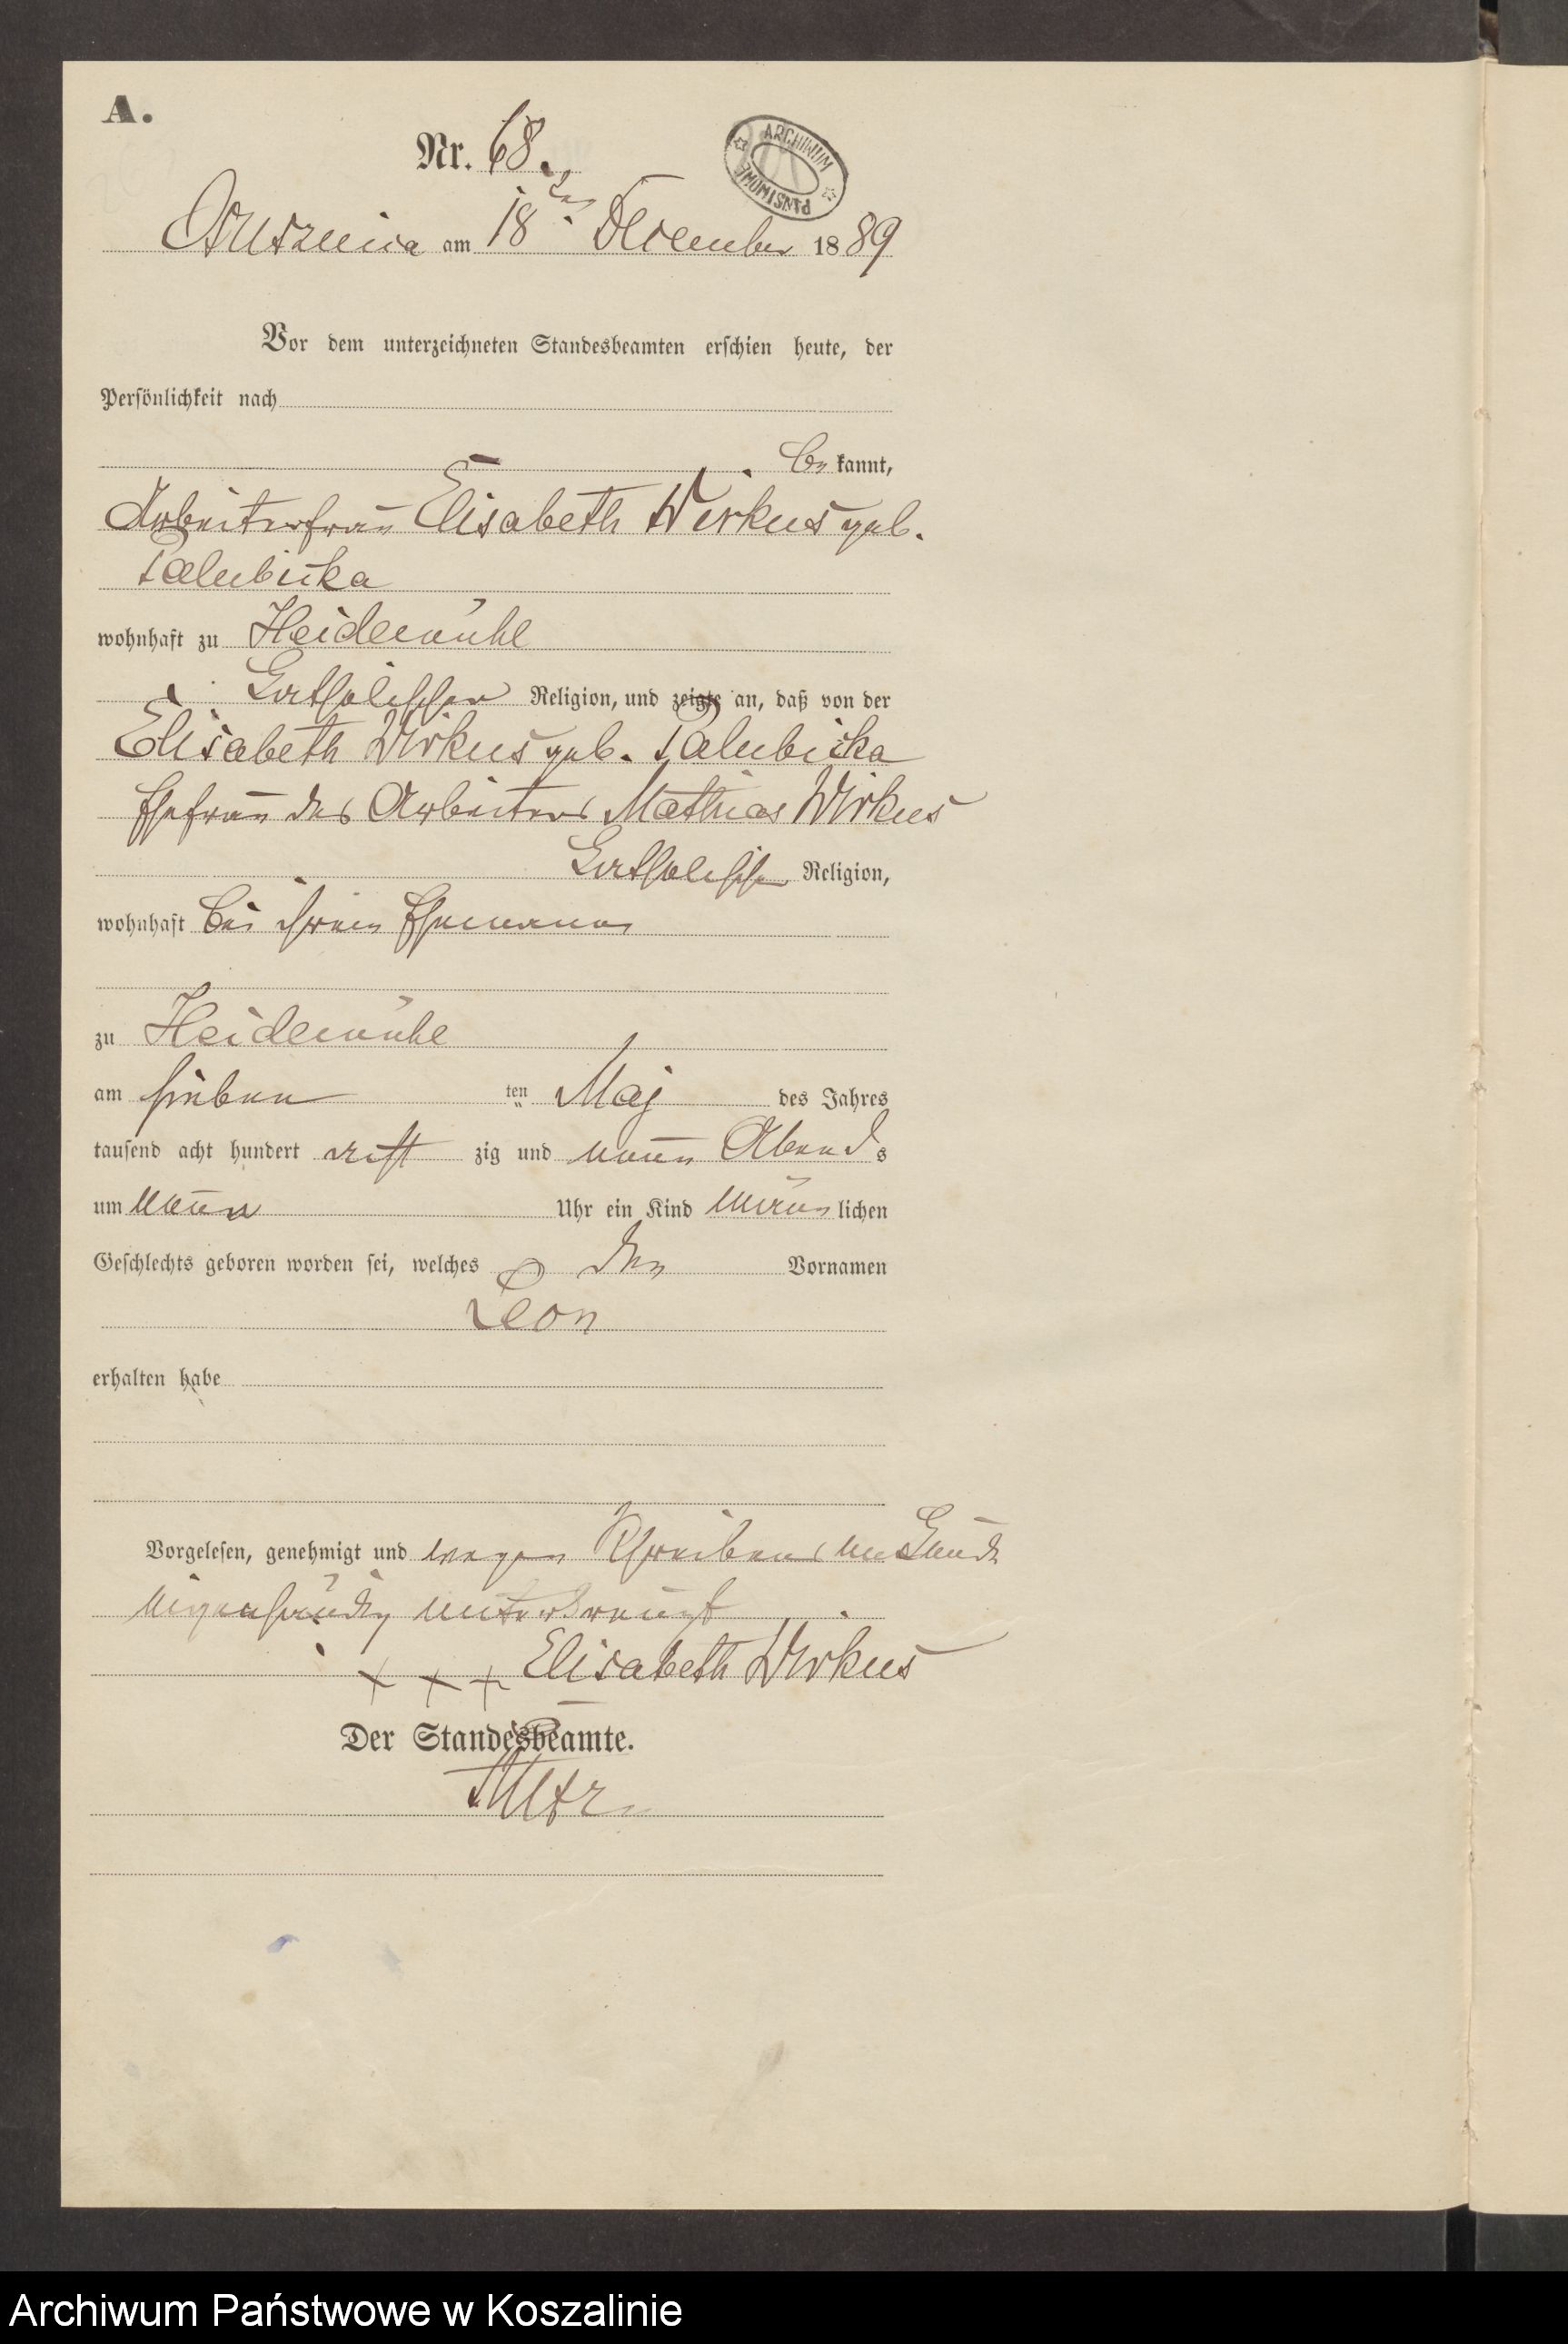 A.
Nr. 68.
ARCHIWUM PAŃSTWOWE
am 18ten December 1889
Vor dem unterzeichneten Standesbeamten erschien heute, der
Persönlichkeit nach
be kannt,
Arbeiterfrau Elisabeth Wirkus geb.
Palubicka
wohnhaft zu Heidemühl
katholischer Religion, und zeigte an, daß von der
Elisabeth Wirkus geb. Palubicka
Ehefrau des Arbeiters Mathias Wirkus
katholischer Religion,
wohnhaft bei ihrem Ehemann
zu Heidemühl
am sieben ten Maj des Jahres
tausend acht hundert acht zig und neun Abends
um neun Uhr ein Kind män lichen
Geschlechts geboren worden sei, welches den Vornamen
Leon
erhalten habe
Vorgelesen, genehmigt und wegen Schreibens unkundi
eigenhändig unterkreuzt
+ + + Elisabeth Wirkus
Der Standesbeamte.
Archiwum Państwowe w Koszalinie